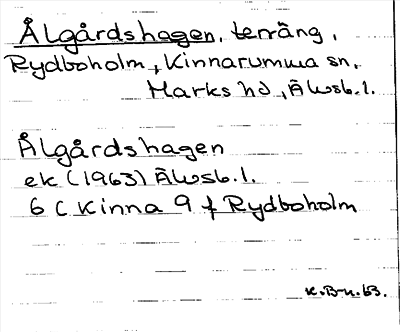 Ålgårdshagen, terräng,
Rydboholm, Kinnarumma sn,
Marks hd, Älvsb.l.
Ålgårdshagen
ek (1963) Älvsb.l.
6 C Kinna 9 f Rydboholm
K.B-n.63.